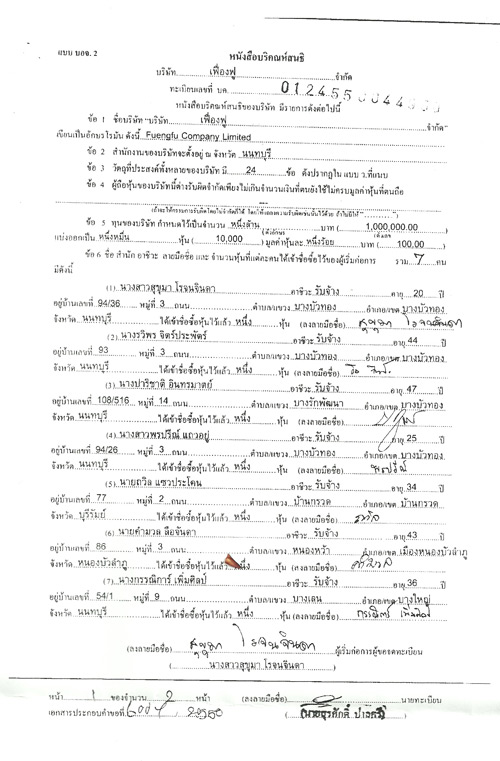 แบบ บอจ. 2
หนังสือบริคณห์สนธิ
บริษัท เฟื่องฟู จำกัด
ทะเบียนเลขที่ บค.
หนังสือบริคณห์สนธิของบริษัท มีรายการดังต่อไปนี้
ข้อ 1 ชื่อบริษัท "บริษัท เฟื่องฟู จำกัด"
เขียนเป็นอักษรโรมัน ดังนี้ Fuengfu Company Limited
ข้อ 2 สำนักงานของบริษัทจะตั้งอยู่ ณ จังหวัด นนทบุรี
ข้อ 3 วัตถุที่ประสงค์ทั้งหลายของบริษัท มี 24 ข้อ ดังปรากฏใน แบบ ว.ที่แนบ
ข้อ 4 ผู้ถือหุ้นของบริษัทนี้ต่างรับผิดจำกัดเพียงไม่เกินจำนวนเงินที่ตนยังใช้ไม่ครบมูลค่าหุ้นที่ตนถือ
ข้อ 5 ทุนของบริษัท กำหนดไว้เป็นจำนวน หนึ่งล้าน บาท ( 1,000,000.00 )
(ตัวอักษร) (ตัวเลข)
แบ่งออกเป็น หนึ่งหมื่น หุ้น ( 10,000 ) มูลค่าหุ้นละ หนึ่งร้อย บาท ( 100.00 )
ข้อ 6 ชื่อ สำนัก อาชีวะ ลายมือชื่อ และ จำนวนหุ้นที่แต่ละคนได้เข้าชื่อซื้อไว้ของผู้เริ่มก่อการ รวม 7 คน
มีดังนี้
(1) นางสาวสุชุมา โรจนจินดา อาชีวะ รับจ้าง อายุ 20 ปี
อยู่บ้านเลขที่ 94/36 หมู่ที่ 3 ถนน ตำบล/แขวง บางบัวทอง อำเภอ/เขต บางบัวทอง
จังหวัด นนทบุรี ได้เข้าชื่อซื้อหุ้นไว้แล้ว หนึ่ง หุ้น (ลงลายมือชื่อ)
(2) นางรวีพร จิตร์ประพัตร์ อาชีวะ รับจ้าง อายุ 44 ปี
อยู่บ้านเลขที่ 93 หมู่ที่ 3 ถนน ตำบล/แขวง บางบัวทอง อำเภอ/เขต บางบัวทอง
จังหวัด นนทบุรี ได้เข้าชื่อซื้อหุ้นไว้แล้ว หนึ่ง หุ้น (ลงลายมือชื่อ)
(3) นางปาริชาติ อินทรมาตย์ อาชีวะ รับจ้าง อายุ 47 ปี
อยู่บ้านเลขที่ 108/516 หมู่ที่ 14 ถนน ตำบล/แขวง บางรักพัฒนา อำเภอ/เขต บางบัวทอง
จังหวัด นนทบุรี ได้เข้าชื่อซื้อหุ้นไว้แล้ว หนึ่ง หุ้น (ลงลายมือชื่อ)
(4) นางสาวพรปรีณ์ แถวอยู่ อาชีวะ รับจ้าง อายุ 25 ปี
อยู่บ้านเลขที่ 94/26 หมู่ที่ 3 ถนน ตำบล/แขวง บางบัวทอง อำเภอ/เขต บางบัวทอง
จังหวัด นนทบุรี ได้เข้าชื่อซื้อหุ้นไว้แล้ว หนึ่ง หุ้น (ลงลายมือชื่อ)
(5) นายถวิล แซวประโคน อาชีวะ รับจ้าง อายุ 34 ปี
อยู่บ้านเลขที่ 77 หมู่ที่ 2 ถนน ตำบล/แขวง บ้านกรวด อำเภอ/เขต บ้านกรวด
จังหวัด บุรีรัมย์ ได้เข้าชื่อซื้อหุ้นไว้แล้ว หนึ่ง หุ้น (ลงลายมือชื่อ) ถวิล
(6) นายคำมวล ลือจันดา อาชีวะ รับจ้าง อายุ 43 ปี
อยู่บ้านเลขที่ 86 หมู่ที่ 3 ถนน ตำบล/แขวง หนองหว้า อำเภอ/เขต เมืองหนองบัวลำภู
จังหวัด หนองบัวลำภู ได้เข้าชื่อซื้อหุ้นไว้แล้ว หนึ่ง หุ้น (ลงลายมือชื่อ)
(7) นางกรรณิการ์ เพิ่มศิลป์ อาชีวะ รับจ้าง อายุ 36 ปี
อยู่บ้านเลขที่ 54/1 หมู่ที่ 9 ถนน ตำบล/แขวง บางเลน อำเภอ/เขต บางใหญ่
จังหวัด นนทบุรี ได้เข้าชื่อซื้อหุ้นไว้แล้ว หนึ่ง หุ้น (ลงลายมือชื่อ)
(ลงลายมือชื่อ) ผู้เริ่มก่อการผู้ขอจดทะเบียน
( นางสาวสุชุมา โรจนจินดา )
หน้า 1 ของจำนวน 2 หน้า (ลงลายมือชื่อ) นายทะเบียน
เอกสารประกอบคำขอที่